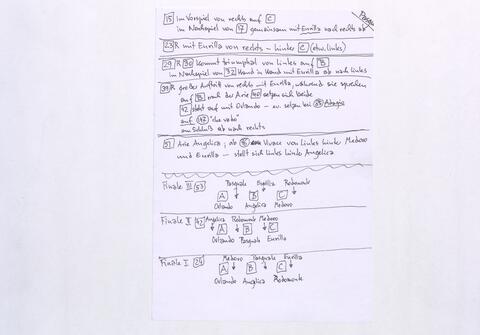 15 im Vorspiel von rechts auf C
im Nachspiel von 17 gemeinsam mit Eurilla nach rechts ab
23 R mit Eurilla von rechts - hinter C (etw. links)
29 R 30 kommt triumphal von links auf B
im Nachspiel von 32 Hand in Hand mit Eurilla ab nach links
39 R großer Auftritt von rechts mit Eurilla, während sie sprechen
auf B nach der Arie 40 setzen sich beide
42 steht auf mit Orlando - ev. setzen bei Adagio
auf "che vedo"
am Schluß ab nach rechts
51 Arie Angelica; ab Vivace von links hinter Medoro
und Eurilla - stellt sich links hinter Angelica
Finale III 53 Pasquale Eurilla Rodomonte
A B C
Orlando Angelica Medoro
Finale II 42 Angelica Rodomonte Medoro
A B C
Orlando Pasquale Eurilla
Finale I 24 Medoro Pasquale Eurilla
A B C
Orlando Angelica Rodomonte